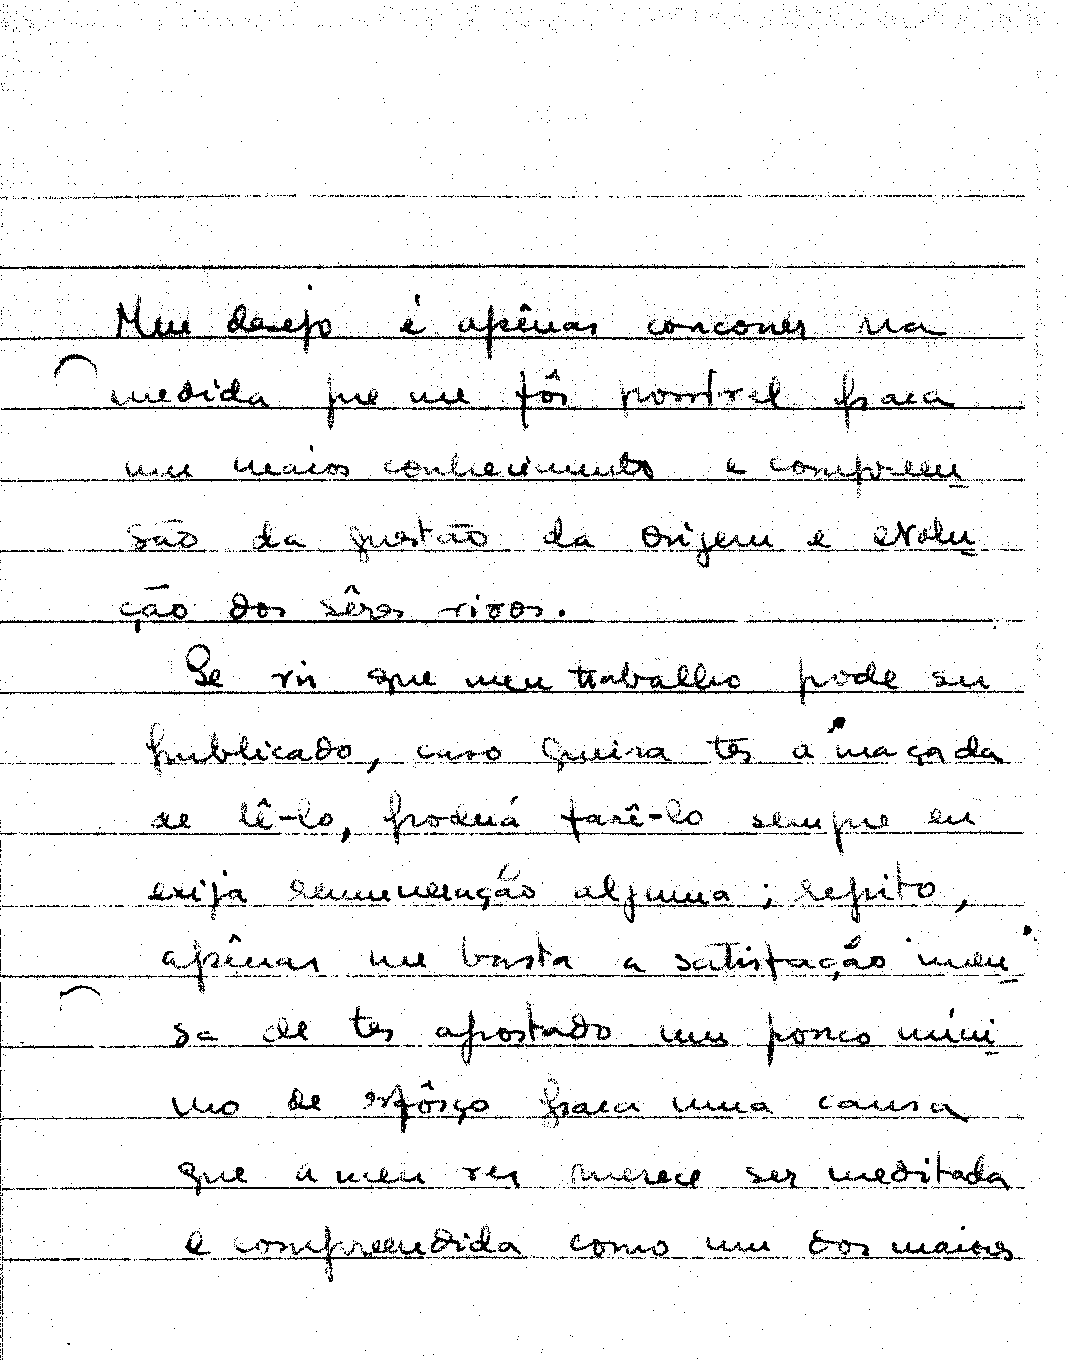 Meu desejo é apênas concorrer na
medida que me fôr possível para
um maior conhecimento e compreen
são da questão da origem e evolu
ção dos sêres vivos.
Se vir que meu trabalho pode ser
publicado, caso queira ter a maçada
de lê-lo, poderá fazê-lo sempre eu
exija remuneração alguma; repito,
apênas me basta a satisfação imen
sa de ter apostado um pouco míni
mo de esfôrço para uma causa
que a meu ver merece ser meditada
e compreendida como um dos maiores